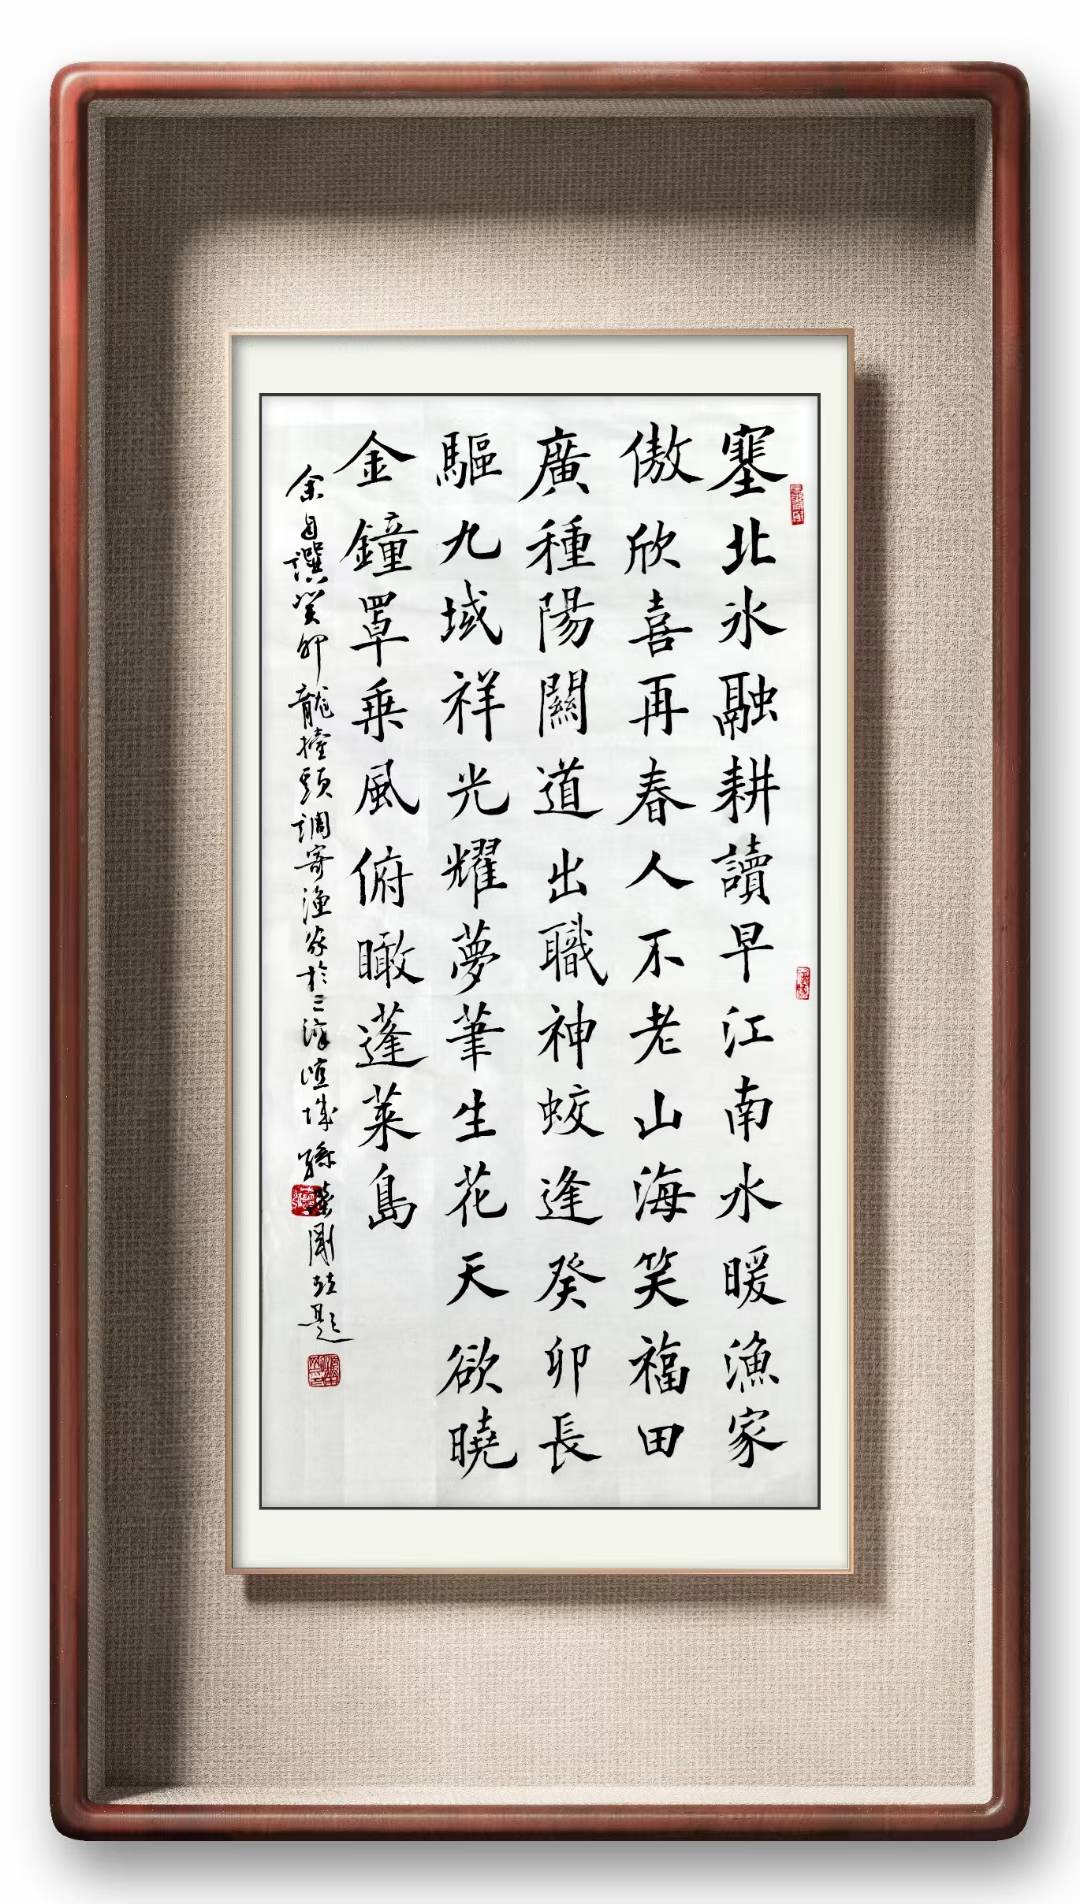 塞北氷融耕讀早江南水暖漁家
傲欣喜再春人不老山海笑福田
廣種陽關道出職神蛟逢癸卯長
驅九域祥光耀夢筆生花天欲曉
金鐘罩乘風俯瞰蓬萊島
余自譔癸卯龍擡頭調寄漁家於三津 孫 剛並題